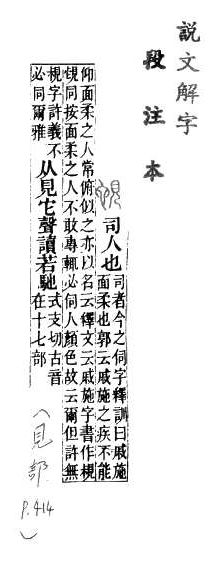 說文解字
段注本
䙾 司人也 司者今之伺字釋訓曰戚施
面柔也郭云戚施之疾不能
仰面柔之人常俯似之亦以名云釋文云戚施字書作䙾
䙾同按面柔之人不敢專輒必伺人顏色故云爾但許無
䙾字許義不
必同爾雅
从見它聲讀若馳
式支切古音
在十七部
(見部
P.414
)